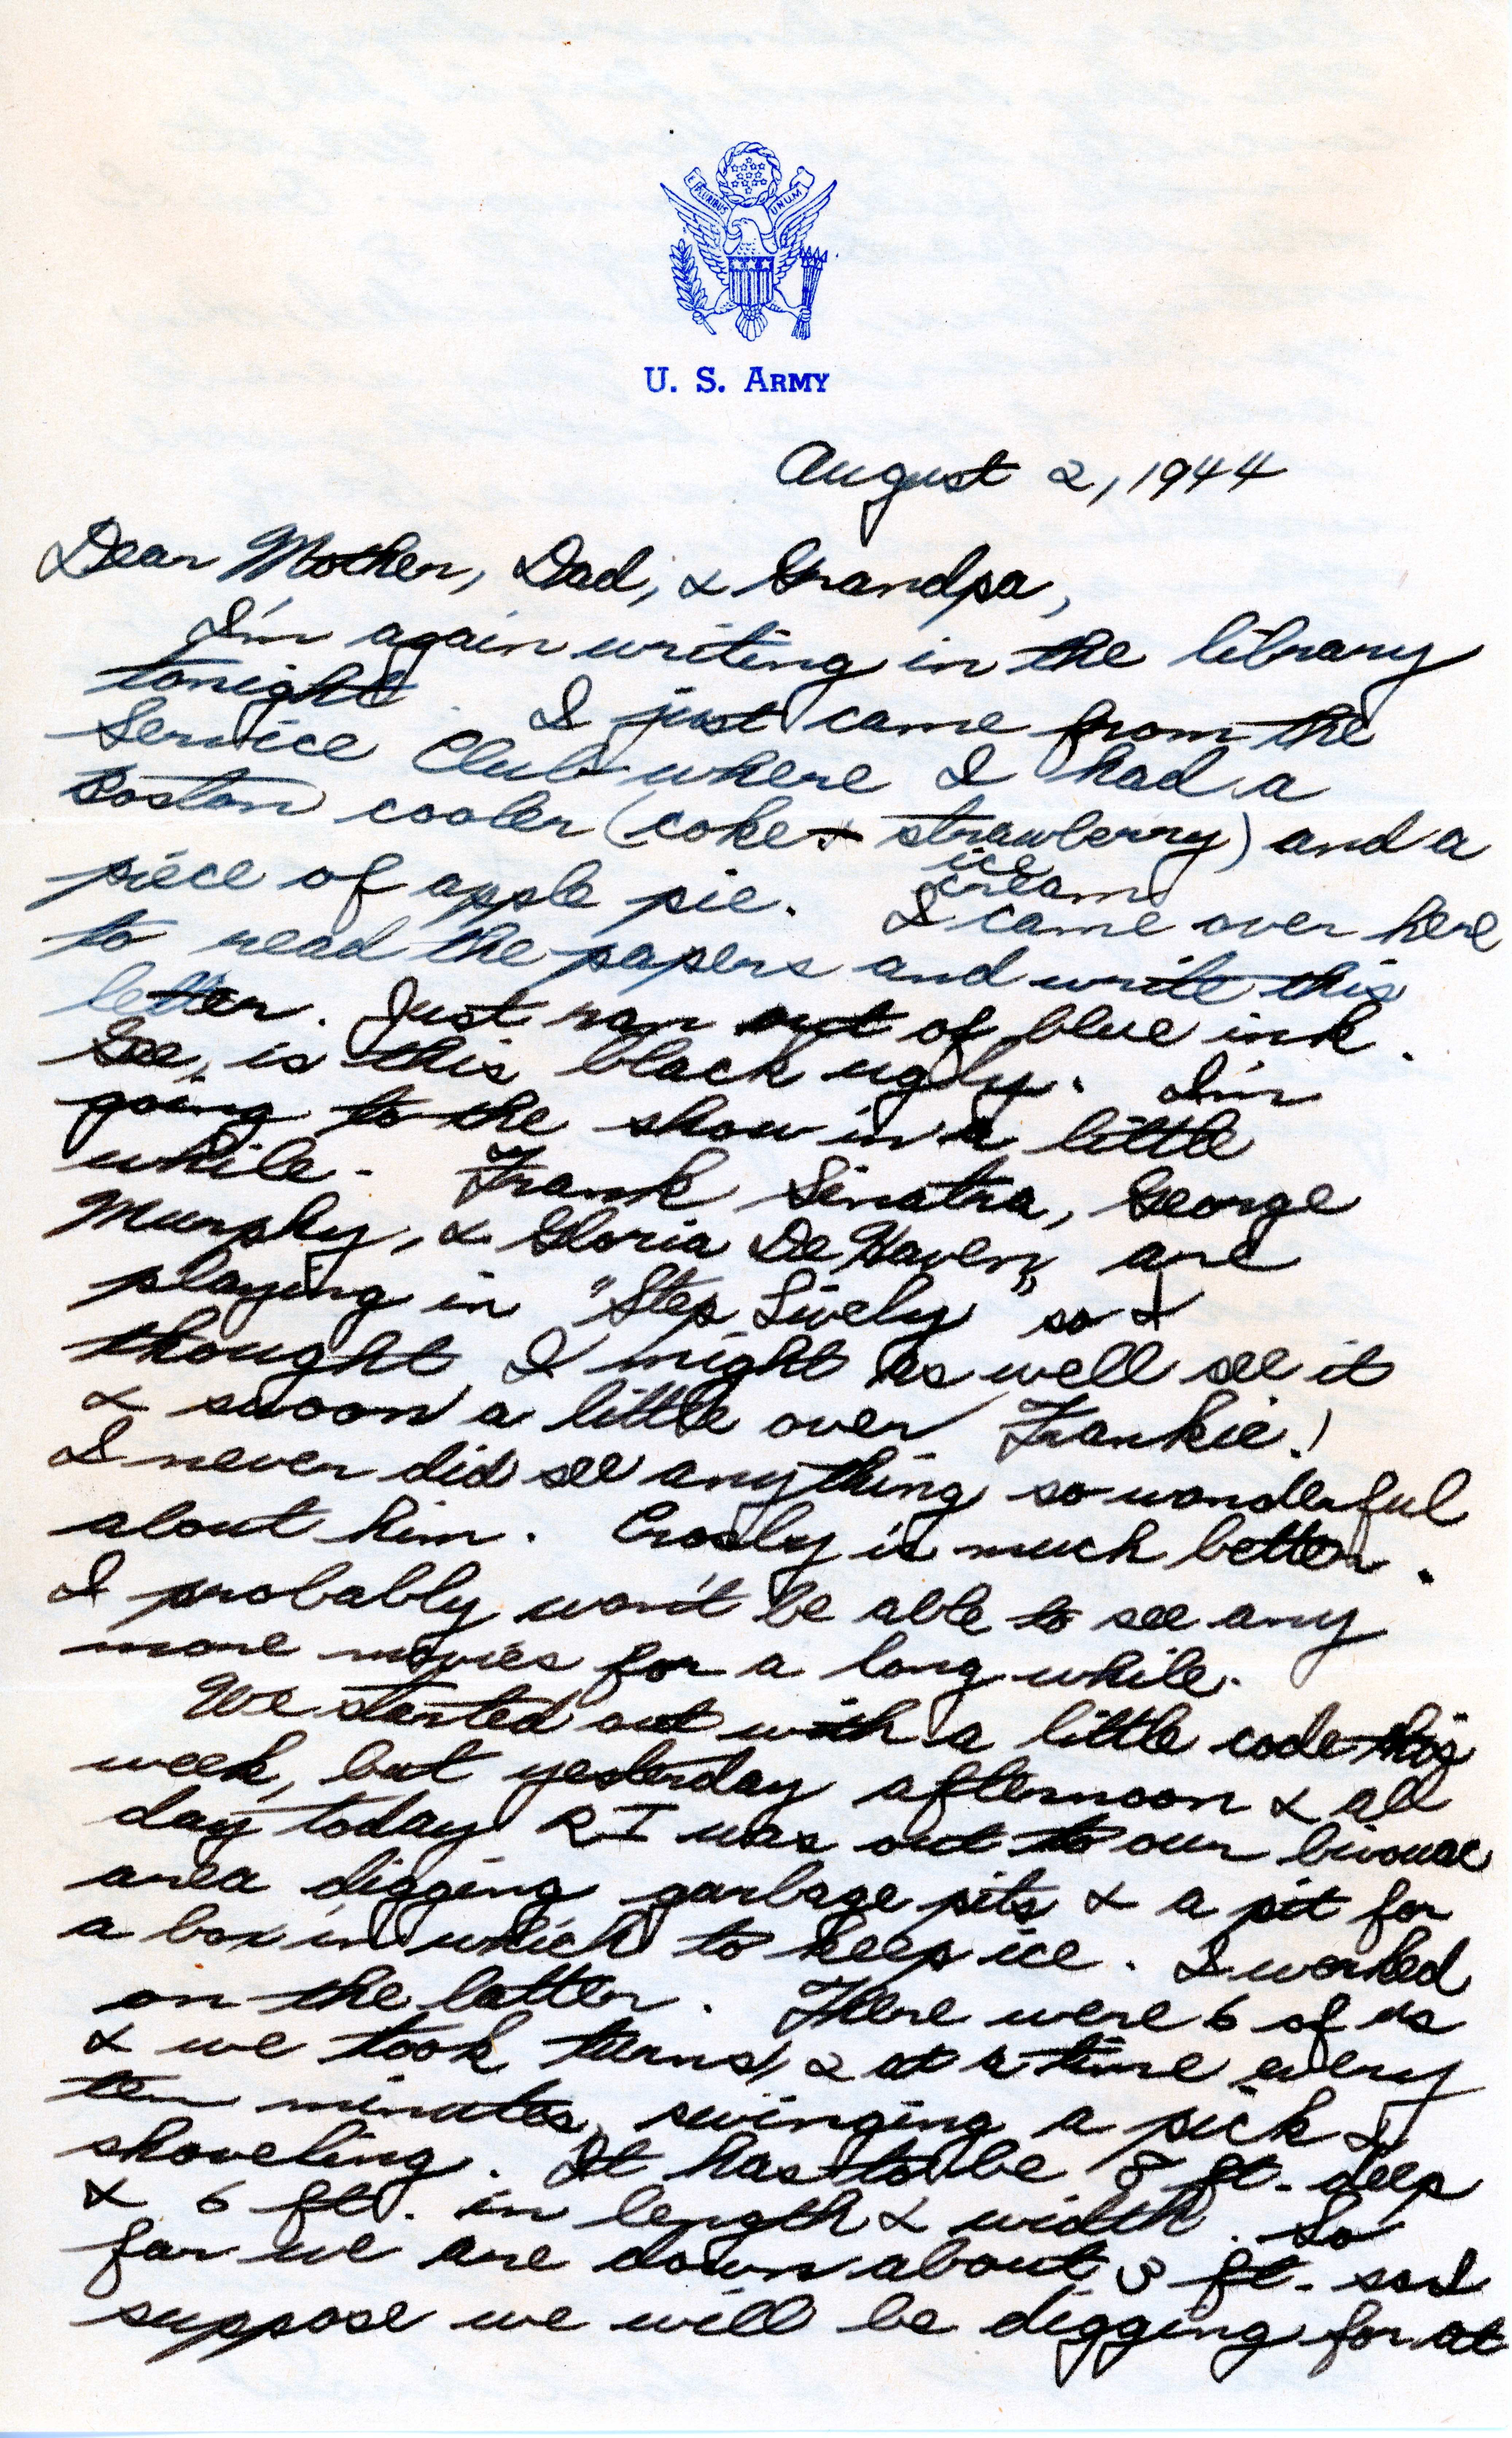 E PLURIBUS UNUM
U. S. ARMY
August 2, 1944
Dear Mother, Dad, & Grandpa,
I'm again writing in the library
tonight. I just came from the
Service Club where I had a
Boston cooler (coke & strawberry) and a
ice
cream
piece of apple pie. I came over here
to read the papers and write this
letter. Just ran out of blue ink.
Gee, is this black ugly. I'm
going to the show in a little
while. Frank Sinatra, George
Murphy, & Gloria De Haven are
playing in "Step Lively" so I
thought I might as well see it
& swoon a little over Frankie!
I never did see anything so wonderful
about him. Crosby is much better.
I probably won't be able to see any
more movies for a long while.
We started out with a little code this
week, but yesterday afternoon & all
day today I was out to our bivouac
area digging garbage pits & a pit for
a box in which to keep ice. I worked
on the latter. There were 6 of us
& we took turns, 2 at a time every
ten minutes, swinging a pick &
shoveling. It has to be 8 ft. deep
& 6 ft. in length & width. So
far we are down about 3 ft. so I
suppose we will be digging for at